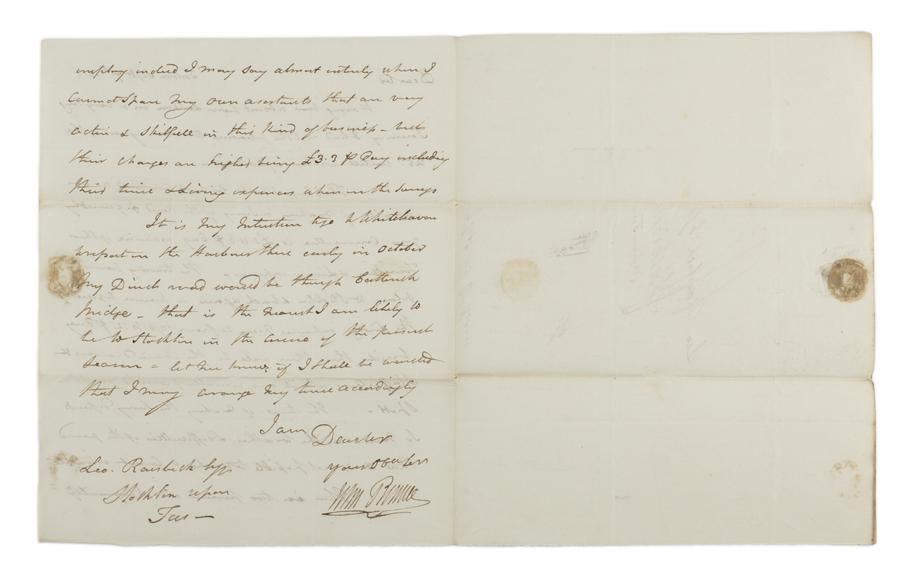 employ indeed I may say almost entirely when I
cannot spare my own assistants that are very
active & skilfull in this kind of business - but
their charges are higher being £3.3 P Day including
their time & Living expences when on the surveys
It is my intention to go to Whitehaven
to report on the Harbour there early in October
My Direct road would be through Catterick
Bridge - that is the nearest I am likely to
be to Stockton in the course of the present
season - let me know if I shall be wanted
that I may arrange my time accordingly
I am Dear Sir
Leo. Raisbeck Esqr
your Ob Ser
Stockton upon
Tees -